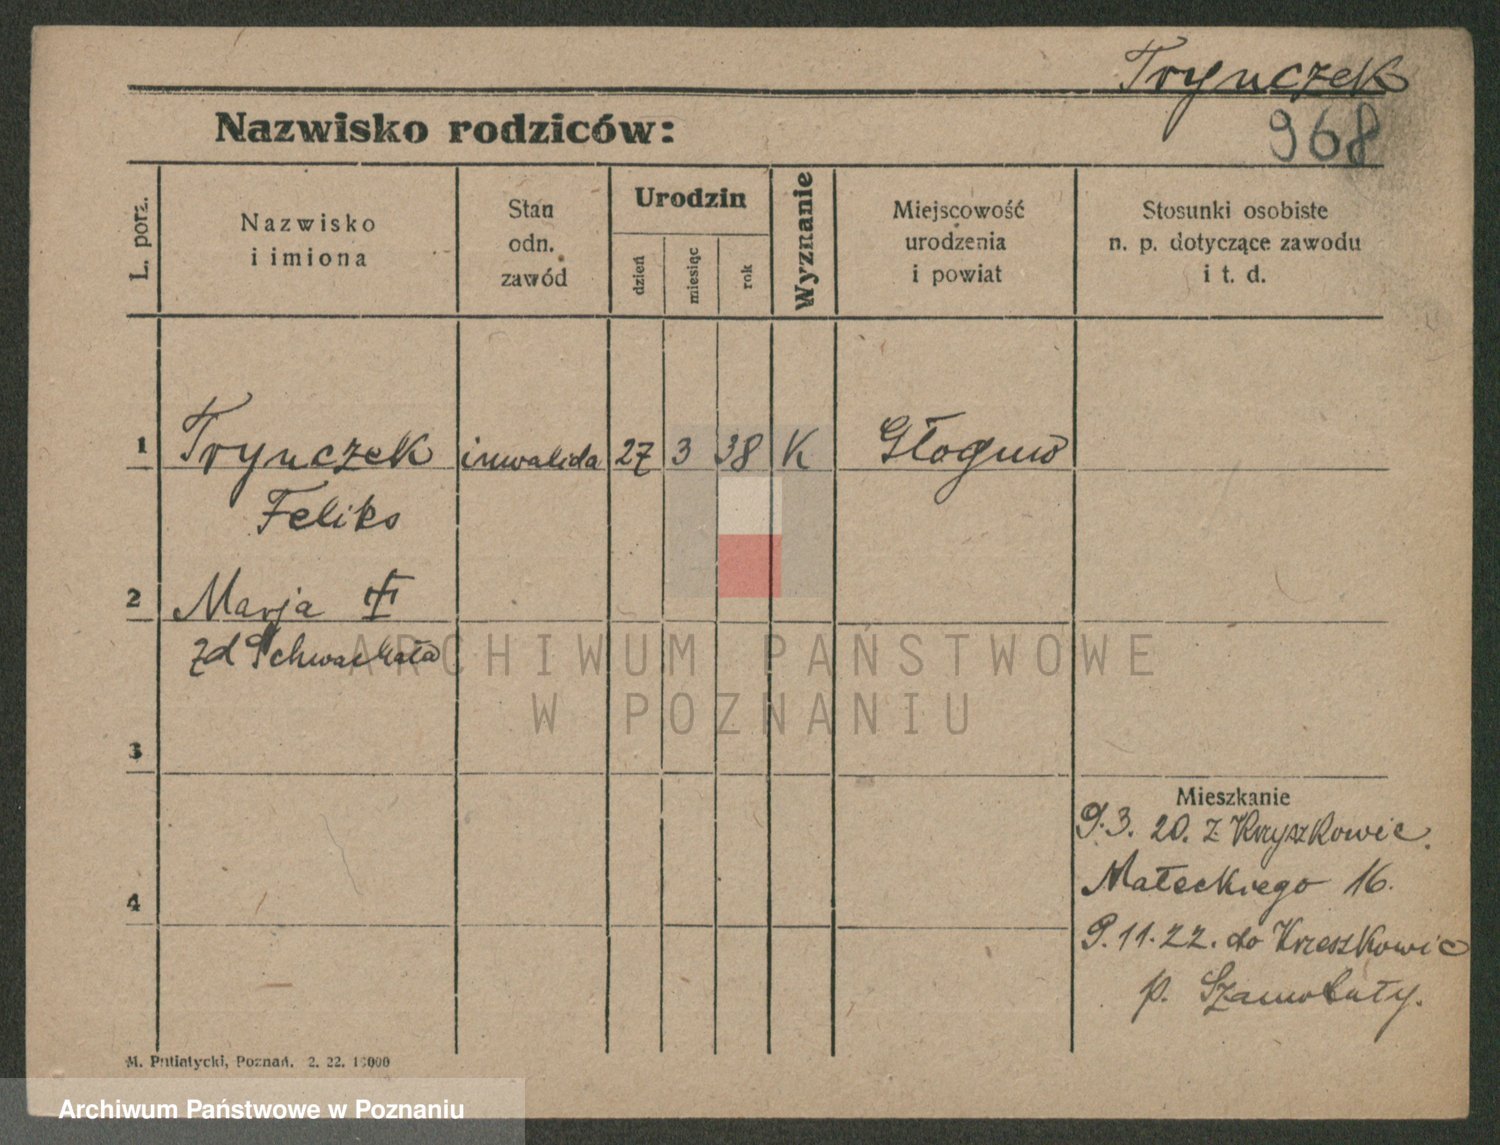 Trynczek
Nazwisko rodziców:
968
L. porz.
Nazwisko
i imiona
Stan
odn.
zawód
Urodzin
dzień
miesiąc
rok
Wyznanie
Miejscowość
urodzenia
i powiat
Stosunki osobiste
n. p. dotyczące zawodu
i t. d.
1 Trynczek inwalida 27 3 38 K Głogów
Feliks
2 Marja
zd
3
4
Mieszkanie
9.3. 20. z Kryszkowic.
Małeckiego 16.
9.11.22. do Krzeszkowic
p. Szamotuły.
ARCHIWUM PAŃSTWOWE
W POZNANIU
M. Putiatycki, Poznań. 2. 22. 10000
Archiwum Państwowe w Poznaniu